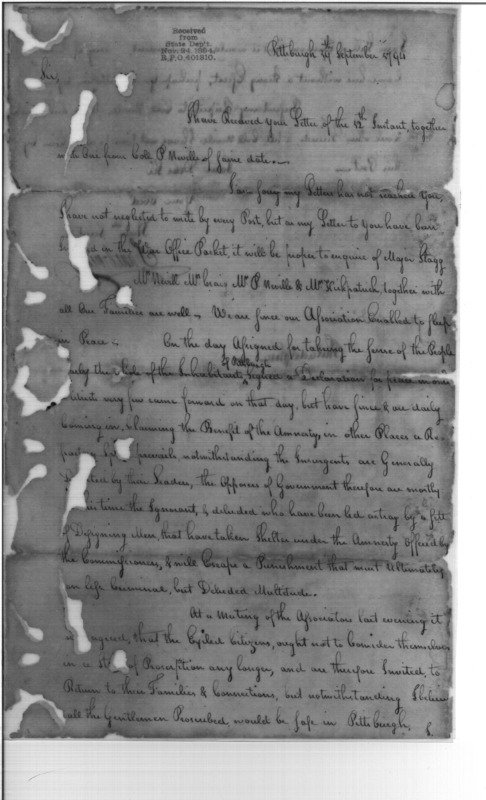 Received
from
State Dep't.
Nov. 24, 1894.
R.P.O. 401810.
Pittsburgh September 1794
Sir,
I have Received your Letter of the 12th Instant, together
with One from Colo. P Neville of same date.
I am sorry my Letters has not reached you,
I have not neglected to write by every Post, but as my Letter to you have been
in the War Office Packet, it will be proper to enquire of Major Stagg
Mrs Nevill Mrs Craig Mrs P Neville & Mrs Kirkpatrick, together with
all Our Families are well. We are since our Association Enabled to sleep
in Peace. On the day Assigned for takeing the sense of the People
the whole of the Inhabitants of Pittsburgh Signed a Declaration for peace in our
very few came forward on that day, but have since & are daily
Comeing in, & claiming the Benefit of the Amnesty, in other Places a
prevails notwithstanding the Insurgents are Generally
by their Leaders, the Opposers of Government therefore are mostly
this time the Ignorant, & deluded who have been led astray by a sett
of Designing Men, that have taken Shelter under the Amnesty Offered by
the Commissioners, & will Escape a Punishment that must Ultimately
on less Criminal, but Deluded Multitude.
At a Meeting of the Association last evening it
agreed, that the Exiled Citizens, ought not to Consider themselves
in a of Proscription any longer, and are therefore Invited to
Return to their Families & Connections, but notwithstanding I believe
all the Gentlemen Proscribed would be safe in Pittsburgh,